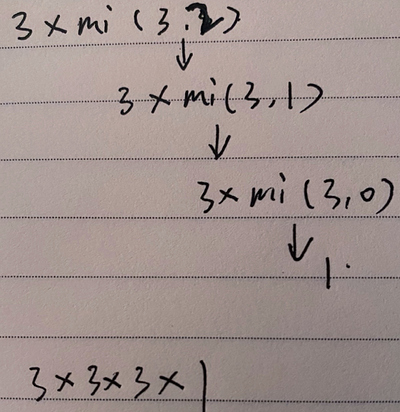 3 × mi (3.2)
↓
3 × mi(3,1)
↓
3× mi (3,0)
↓
1.
3×3×3×1